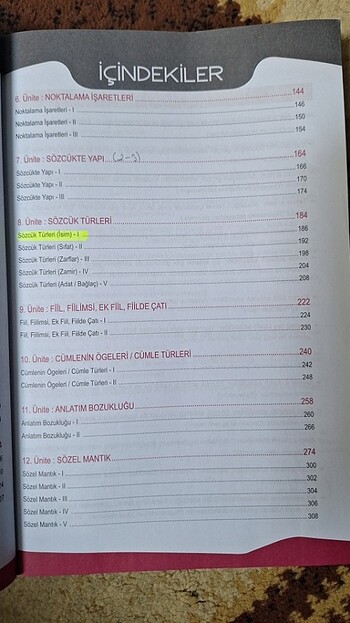 İÇİNDEKİLER
6. Ünite : NOKTALAMA İŞARETLERİ 144
Noktalama İşaretleri - I 146
Noktalama İşaretleri - II 150
Noktalama İşaretleri - III 154
7. Ünite : SÖZCÜKTE YAPI (2-3) 164
Sözcükte Yapı - I 166
Sözcükte Yapı - II 170
Sözcükte Yapı - III 174
8. Ünite : SÖZCÜK TÜRLERİ 184
Sözcük Türleri (İsim) - I 186
Sözcük Türleri (Sıfat) - II 192
Sözcük Türleri (Zarflar) - III 198
Sözcük Türleri (Zamir) - IV 204
Sözcük Türleri (Adat / Bağlaç) - V 208
9. Ünite : FİİL, FİİLİMSİ, EK FİİL, FİİLDE ÇATI 222
Fiil, Fiilimsi, Ek Fiil, Fiilde Çatı - I 224
Fiil, Fiilimsi, Ek Fiil, Fiilde Çatı - II 230
10. Ünite : CÜMLENİN ÖGELERİ / CÜMLE TÜRLERİ 240
Cümlenin Ögeleri / Cümle Türleri - I 242
Cümlenin Ögeleri / Cümle Türleri - II 248
11. Ünite : ANLATIM BOZUKLUĞU 258
Anlatım Bozukluğu - I 260
Anlatım Bozukluğu - II 266
12. Ünite : SÖZEL MANTIK 274
Sözel Mantık - I 300
Sözel Mantık - II 302
Sözel Mantık - III 304
Sözel Mantık - IV 306
Sözel Mantık - V 308